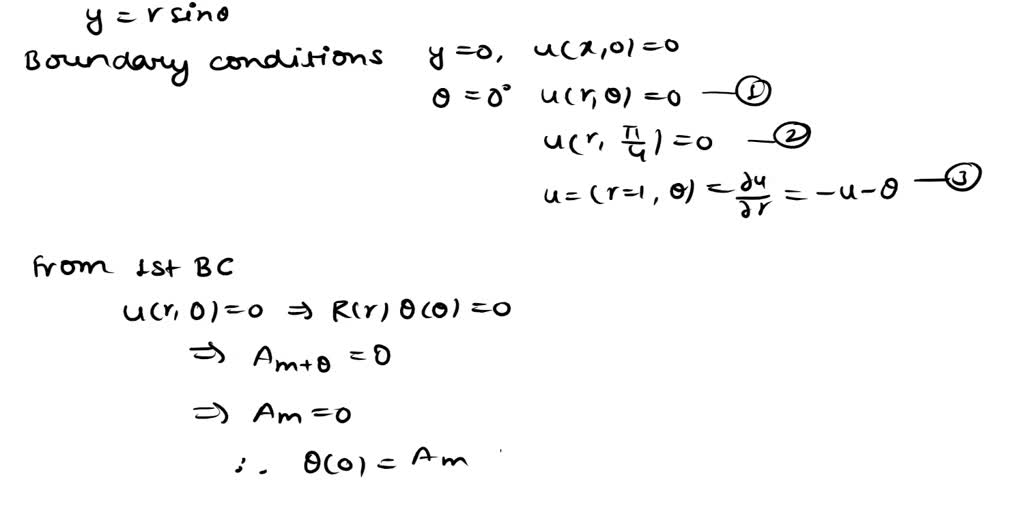 y = r sinθ
Boundary conditions y=0, u(x,0)=0
θ = 0° u(r,θ) = 0 —①
u(r, π/4) = 0 —②
u = (r=1, θ) = ∂u/∂r = -u-θ —③
From 1st BC
u(r,0) = 0 ⇒ R(r) θ(0) = 0
⇒ A_{m+0} = 0
⇒ A_m = 0
∴ θ(0) = A_m